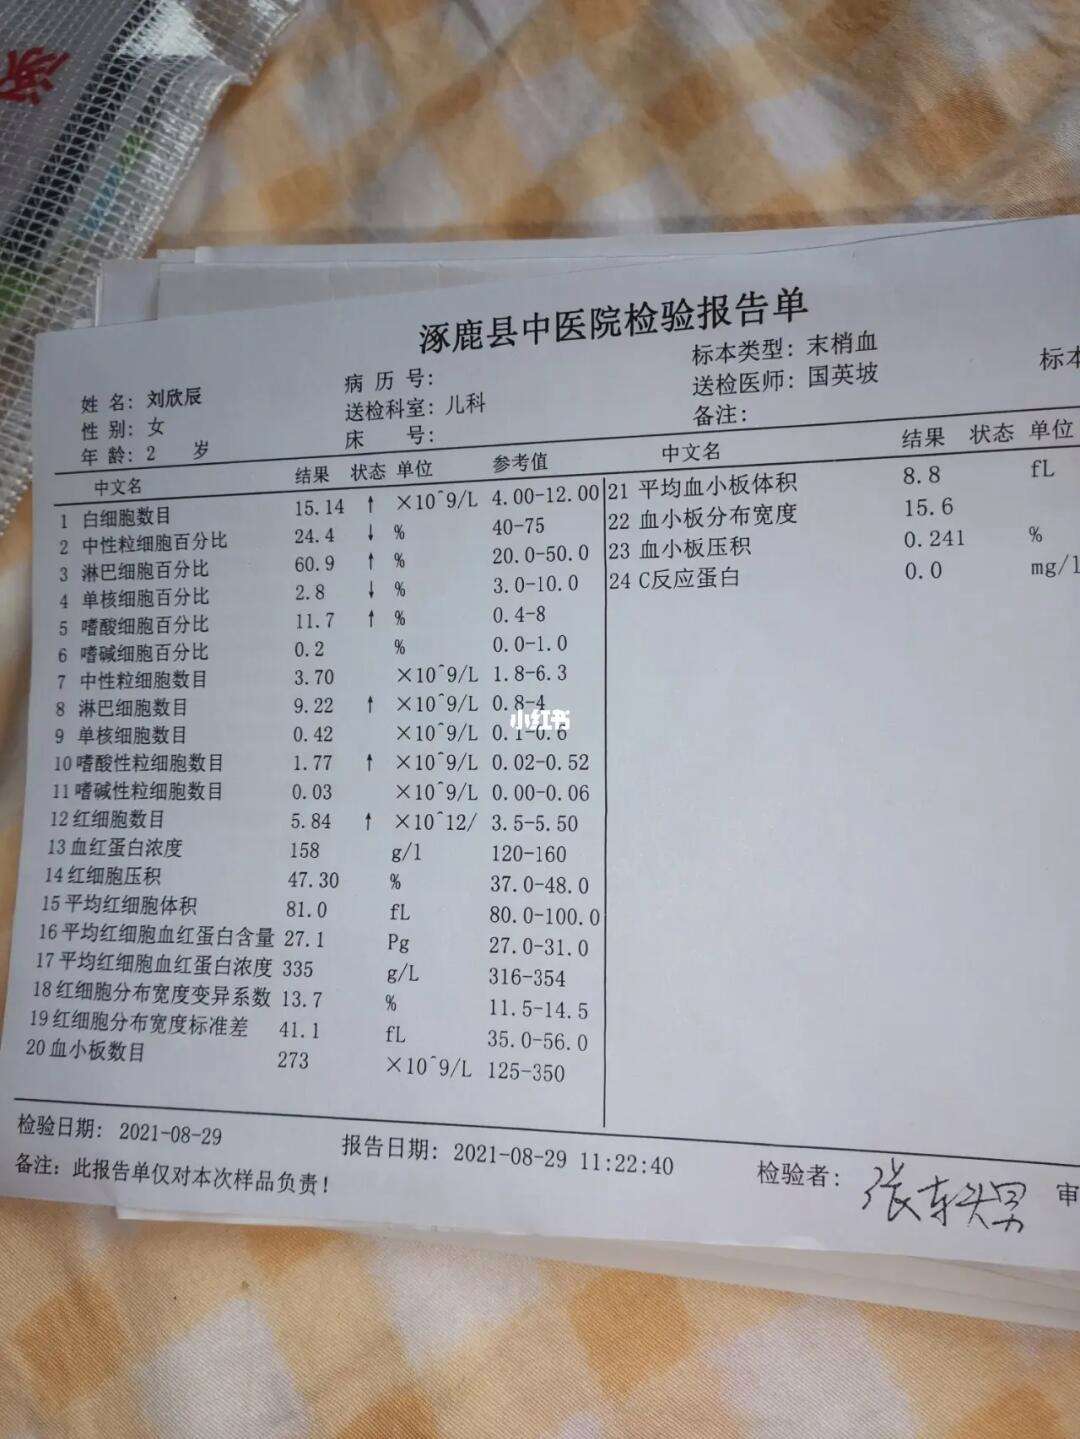 涿鹿县中医院检验报告单
姓 名: 刘欣辰 病 历 号: 标本类型: 末梢血 标本
性 别: 女 送检科室: 儿科 送检医师: 国英坡
年 龄: 2 岁 床 号: 备注:
中文名 结果 状态 单位 参考值
1 白细胞数目 15.14 ↑ ×10^9/L 4.00-12.00
2 中性粒细胞百分比 24.4 ↓ % 40-75
3 淋巴细胞百分比 60.9 ↑ % 20.0-50.0
4 单核细胞百分比 2.8 ↓ % 3.0-10.0
5 嗜酸细胞百分比 11.7 ↑ % 0.4-8
6 嗜碱细胞百分比 0.2 % 0.0-1.0
7 中性粒细胞数目 3.70 ×10^9/L 1.8-6.3
8 淋巴细胞数目 9.22 ↑ ×10^9/L 0.8-4
9 单核细胞数目 0.42 ×10^9/L 0.1-0.6
10 嗜酸性粒细胞数目 1.77 ↑ ×10^9/L 0.02-0.52
11 嗜碱性粒细胞数目 0.03 ×10^9/L 0.00-0.06
12 红细胞数目 5.84 ↑ ×10^12/ 3.5-5.50
13 血红蛋白浓度 158 g/l 120-160
14 红细胞压积 47.30 % 37.0-48.0
15 平均红细胞体积 81.0 fL 80.0-100.0
16 平均红细胞血红蛋白含量 27.1 Pg 27.0-31.0
17 平均红细胞血红蛋白浓度 335 g/L 316-354
18 红细胞分布宽度变异系数 13.7 % 11.5-14.5
19 红细胞分布宽度标准差 41.1 fL 35.0-56.0
20 血小板数目 273 ×10^9/L 125-350
中文名 结果 状态 单位
21 平均血小板体积 8.8 fL
22 血小板分布宽度 15.6
23 血小板压积 0.241 %
24 C反应蛋白 0.0 mg/l
小红书
检验日期: 2021-08-29 报告日期: 2021-08-29 11:22:40 检验者: 审
备注: 此报告单仅对本次样品负责!